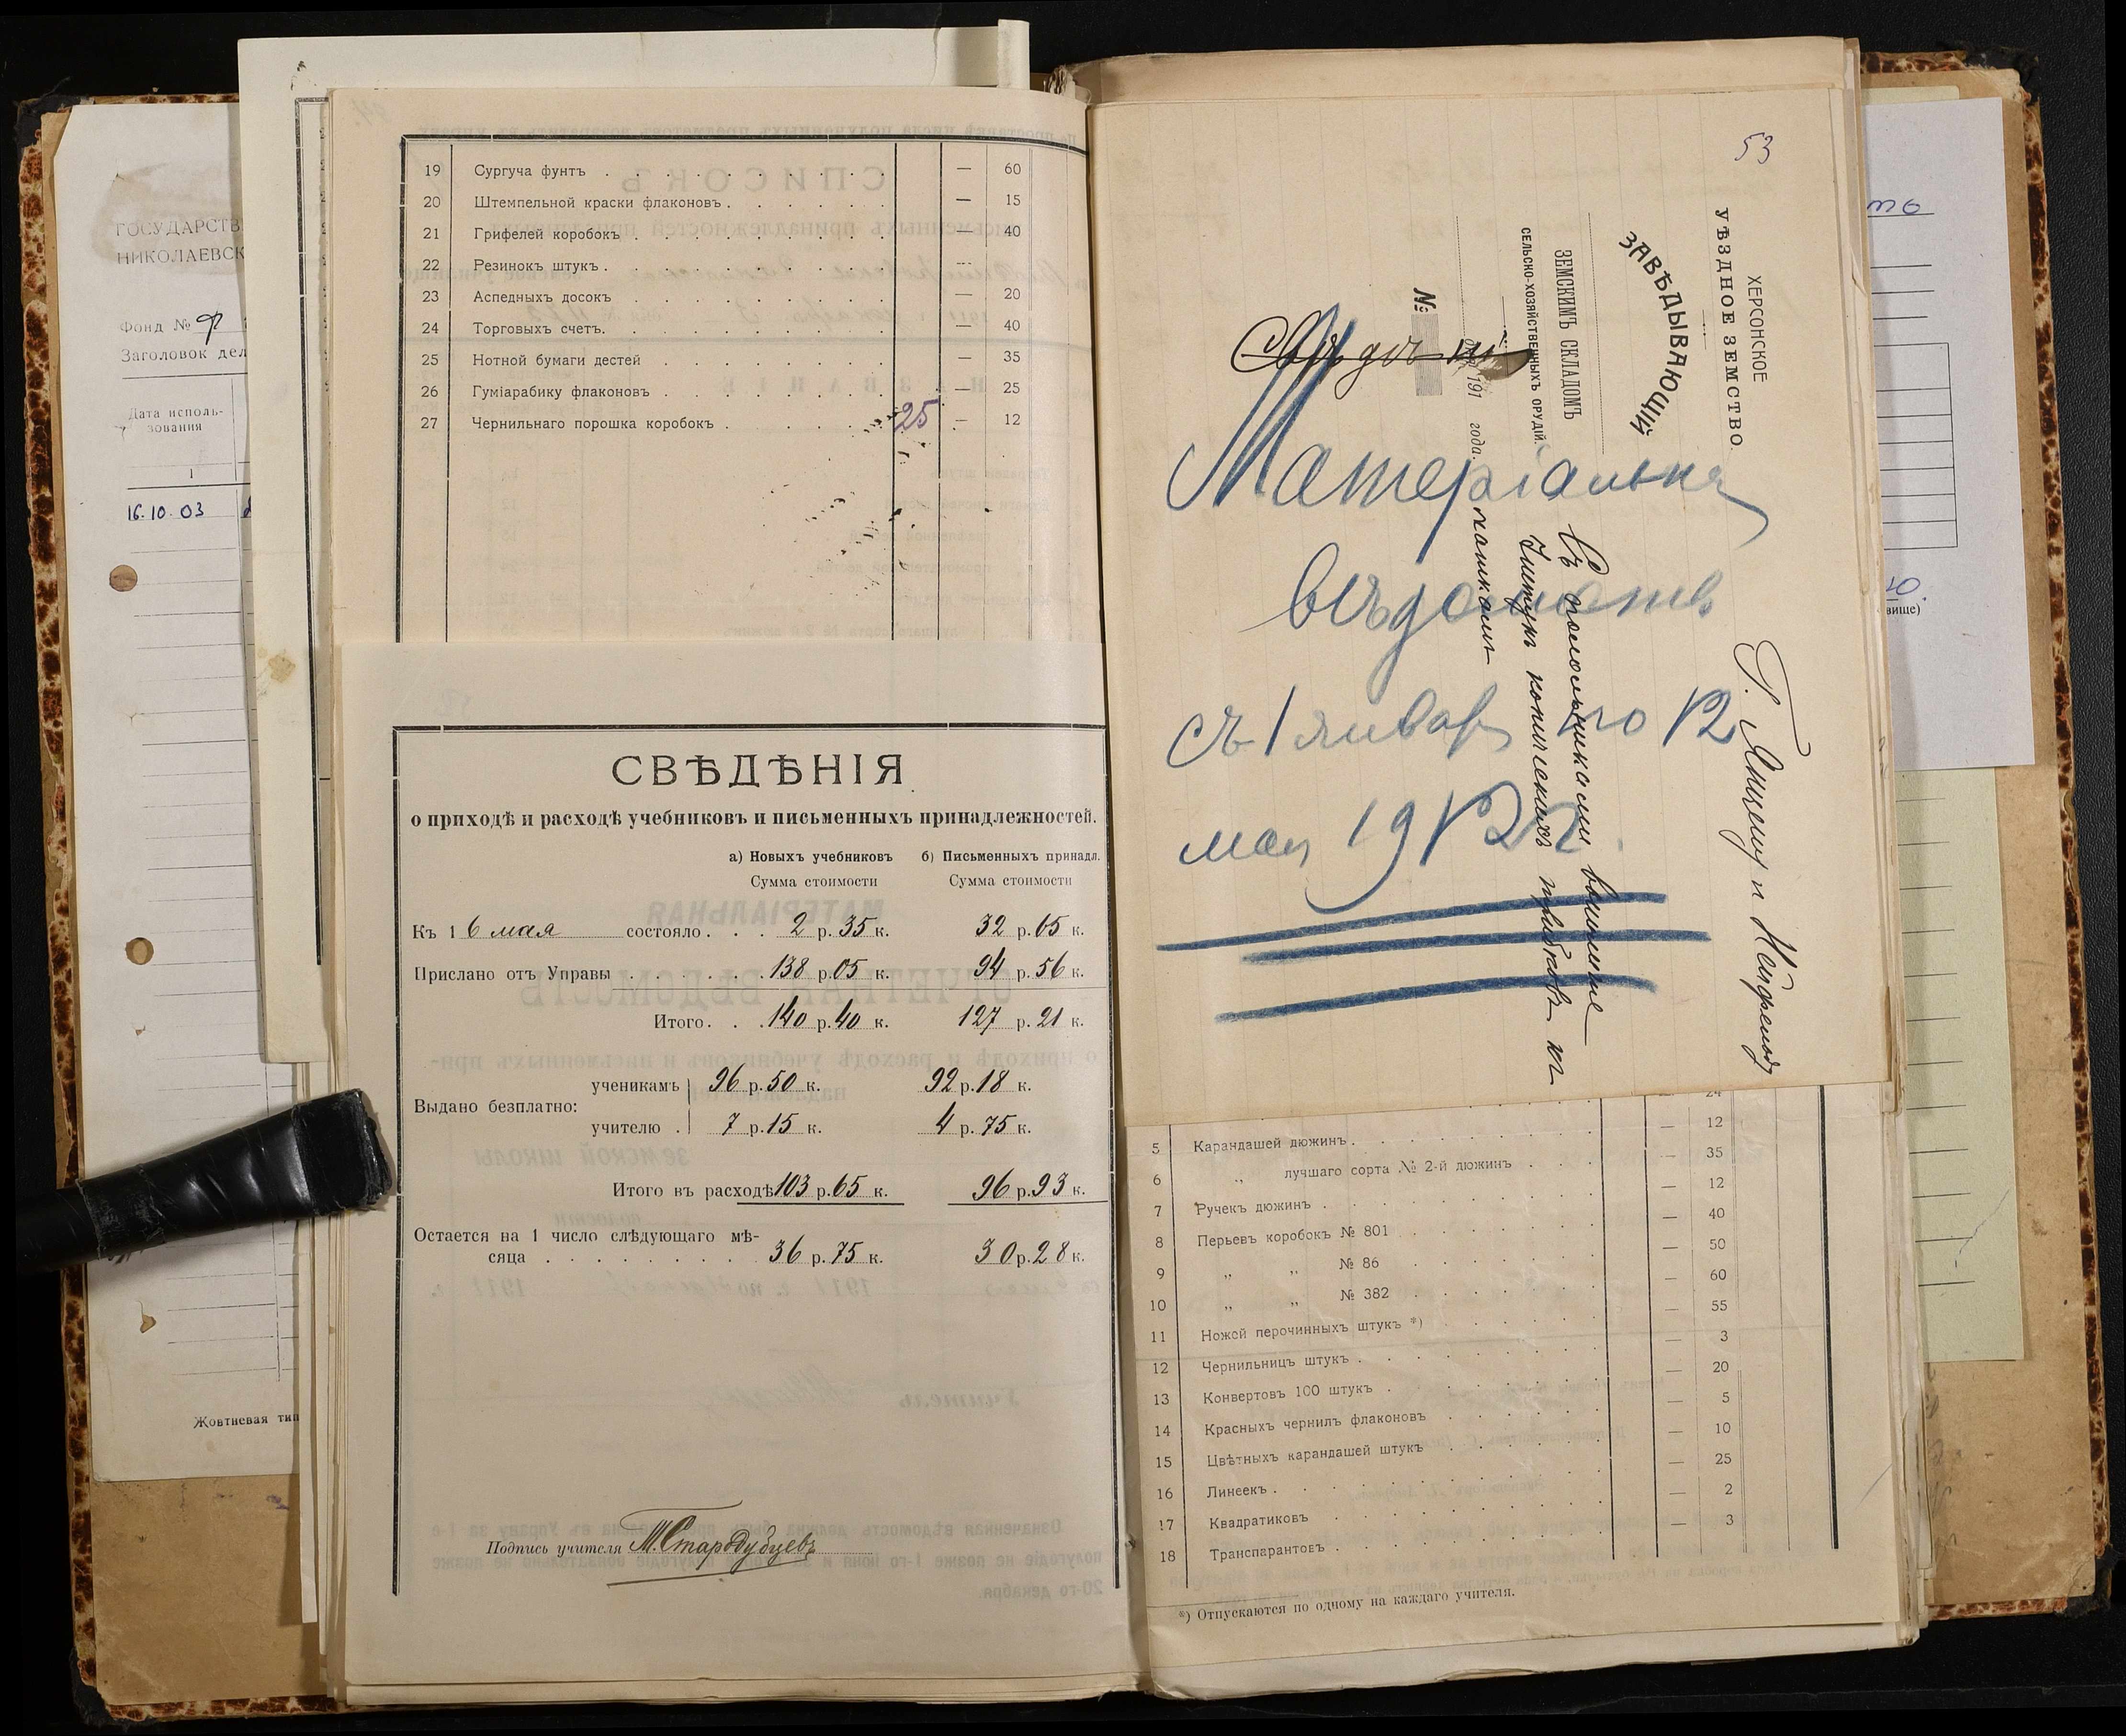 ГОСУДАРСТВ
НИКОЛАЕВСК
Фонд №
Заголовок дел
Дата исполь-
зования
1
16.10.03
Жовтневая тип
19 Сургуча фунтъ — 60
20 Штемпельной краски флаконовъ — 15
21 Грифелей коробокъ — 40
22 Резинокъ штукъ —
23 Аспедныхъ досокъ — 20
24 Торговыхъ счетъ — 40
25 Нотной бумаги дестей — 35
26 Гуміарабику флаконовъ — 25
27 Чернильнаго порошка коробокъ 25 — 12
СВѢДѢНІЯ
о приходѣ и расходѣ учебниковъ и письменныхъ принадлежностей.
а) Новыхъ учебниковъ б) Письменныхъ принадл.
Сумма стоимости Сумма стоимости
Къ 1 6 мая состояло 2 р. 35 к. 32 р. 65 к.
Прислано отъ Управы 138 р. 05 к. 94 р. 56 к.
Итого 140 р. 40 к. 127 р. 21 к.
Выдано безплатно:
ученикамъ 96 р. 50 к. 92 р. 18 к.
учителю 7 р. 15 к. 4 р. 75 к.
Итого въ расходѣ 103 р. 65 к. 96 р. 93 к.
Остается на 1 число слѣдующаго мѣ-
сяца 36 р. 75 к. 30 р. 28 к.
Подпись учителя Т. Стародубцевъ
53
ХЕРСОНСКОЕ
УѢЗДНОЕ ЗЕМСТВО.
ЗАВѢДЫВАЮЩІЙ
ЗЕМСКИМЪ СКЛАДОМЪ
СЕЛЬСКО-ХОЗЯЙСТВЕННЫХЪ ОРУДІЙ.
дня 191 года.
№
Матеріальная
вѣдомость
съ 1 января по 12
мая 1912 г.
24
5 Карандашей дюжинъ — 12
6 „ лучшаго сорта № 2-й дюжинъ — 35
7 Ручекъ дюжинъ — 12
8 Перьевъ коробокъ № 801 — 40
9 „ „ № 86 — 50
10 „ „ № 382 — 60
11 Ножей перочинныхъ штукъ *) — 55
12 Чернильницъ штукъ — 3
13 Конвертовъ 100 штукъ — 20
14 Красныхъ чернилъ флаконовъ — 5
15 Цвѣтныхъ карандашей штукъ — 10
16 Линеекъ — 25
17 Квадратиковъ — 2
18 Транспарантовъ — 3
*) Отпускаются по одному на каждаго учителя.
вище)